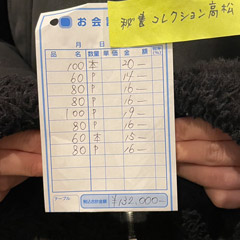 秘書コレクション高松
お会計
月 日
品 名 数量 単価 金 額
100 本 20—
60 P 14—
80 P 16—
80 P 16—
100 P 19—
80 P 16—
60 本 15—
80 P 16—
テーブル 税込合計金額 ¥132,000—